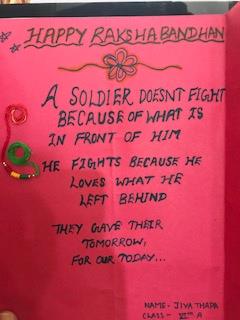 HAPPY RAKSHA BANDHAN
A SOLDIER DOESNT FIGHT
BECAUSE OF WHAT IS
IN FRONT OF HIM
HE FIGHTS BECAUSE HE
LOVES WHAT HE
LEFT BEHIND
THEY GAVE THEIR
TOMORROW,
FOR OUR TODAY...
NAME- JIYA THAPA
CLASS- VIIth A